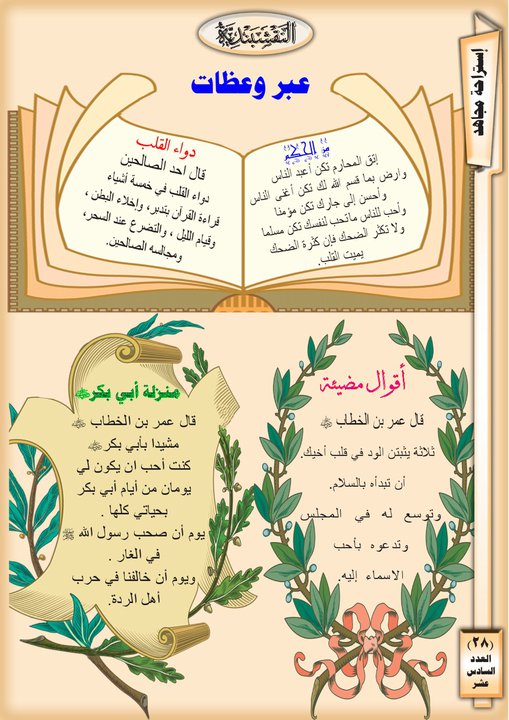 النقشبندية
إستراحة مجاهد
عبر وعظات
من الحكم
إتق المحارم تكن أعبد الناس
وارض بما قسم الله لك تكن أغنى الناس
وأحسن إلى جارك تكن مؤمنا
وأحب للناس ماتحب لنفسك تكن مسلما
ولا تكثر الضحك فإن كثرة الضحك
يميت القلب.
دواء القلب
قال احد الصالحين
دواء القلب في خمسة أشياء
قراءة القرآن بتدبر، وإخلاء البطن ،
وقيام الليل ، والتضرع عند السحر،
ومجالسه الصالحين.
أقوال مضيئة
قال عمر بن الخطاب ﷺ
ثلاثة يثبتن الود في قلب أخيك.
أن تبدأه بالسلام.
وتوسع له في المجلس
وتدعوه بأحب
الاسماء إليه.
منزلة أبي بكر
قال عمر بن الخطاب
مشيدا بأبي بكر
كنت أحب ان يكون لي
يومان من أيام أبي بكر
بحياتي كلها .
يوم أن صحب رسول الله ﷺ
في الغار .
ويوم أن خالفنا في حرب
أهل الردة.
(٢٨)
العدد
السادس
عشر